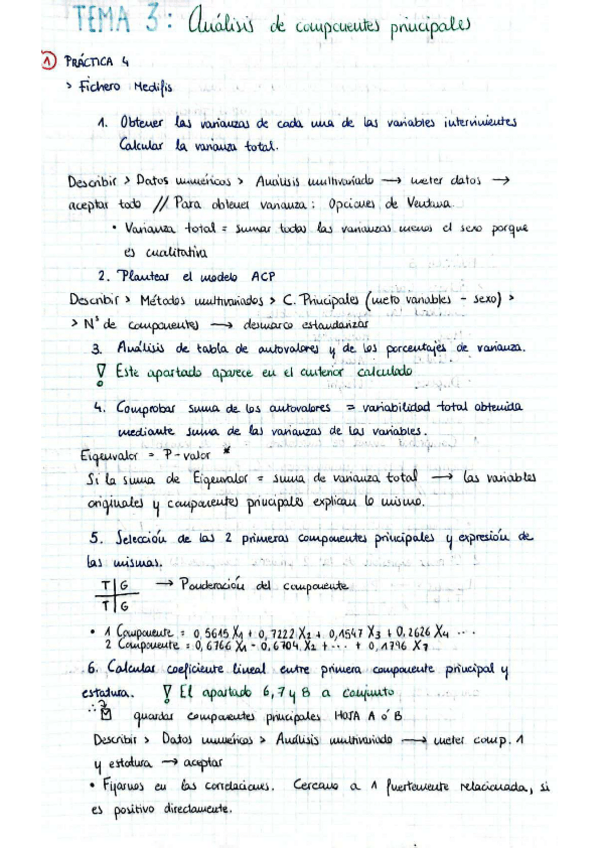 TEMA 3: Análisis de componentes principales
1 PRÁCTICA 4
> Fichero Medifis
1. Obtener las varianzas de cada una de las variables intervinientes
Calcular la varianza total.
Describir > Datos numéricos > Análisis multivariado → meter datos →
aceptar todo // Para obtener varianza: Opciones de Ventana.
• Varianza total = sumar todas las varianzas menos el sexo porque
es cualitativa
2. Plantear el modelo ACP
Describir > Métodos multivariados > C. Principales (meto variables - sexo) >
> Nº de componentes → desmarco estandarizar
3. Análisis de tabla de autovalores y de los porcentajes de varianza.
! Este apartado aparece en el anterior calculado
4. Comprobar suma de los autovalores = variabilidad total obtenida
mediante suma de las varianzas de las variables.
Eigenvalor = P-valor *
Si la suma de Eigenvalor = suma de varianza total → las variables
originales y componentes principales explican lo mismo.
5. Selección de las 2 primeras componentes principales y expresión de
las mismas.
T | G → Ponderación del componente
T | G
• 1 Componente = 0,5615 X1 + 0,7222 X2 + 0,1547 X3 + 0,2626 X4 ...
2 Componente = 0,6766 X1 - 0,6704 X2 + ... + 0,1796 X7
6. Calcular coeficiente lineal entre primera componente principal y
estadura. ! El apartado 6, 7 y 8 a conjunto
guardar componentes principales HOJA A ó B
Describir > Datos numéricos > Análisis multivariado → meter comp. 1
y estadura → aceptar
• Fijarnos en las correlaciones. Cercano a 1 fuertemente relacionada, si
es positivo directamente.